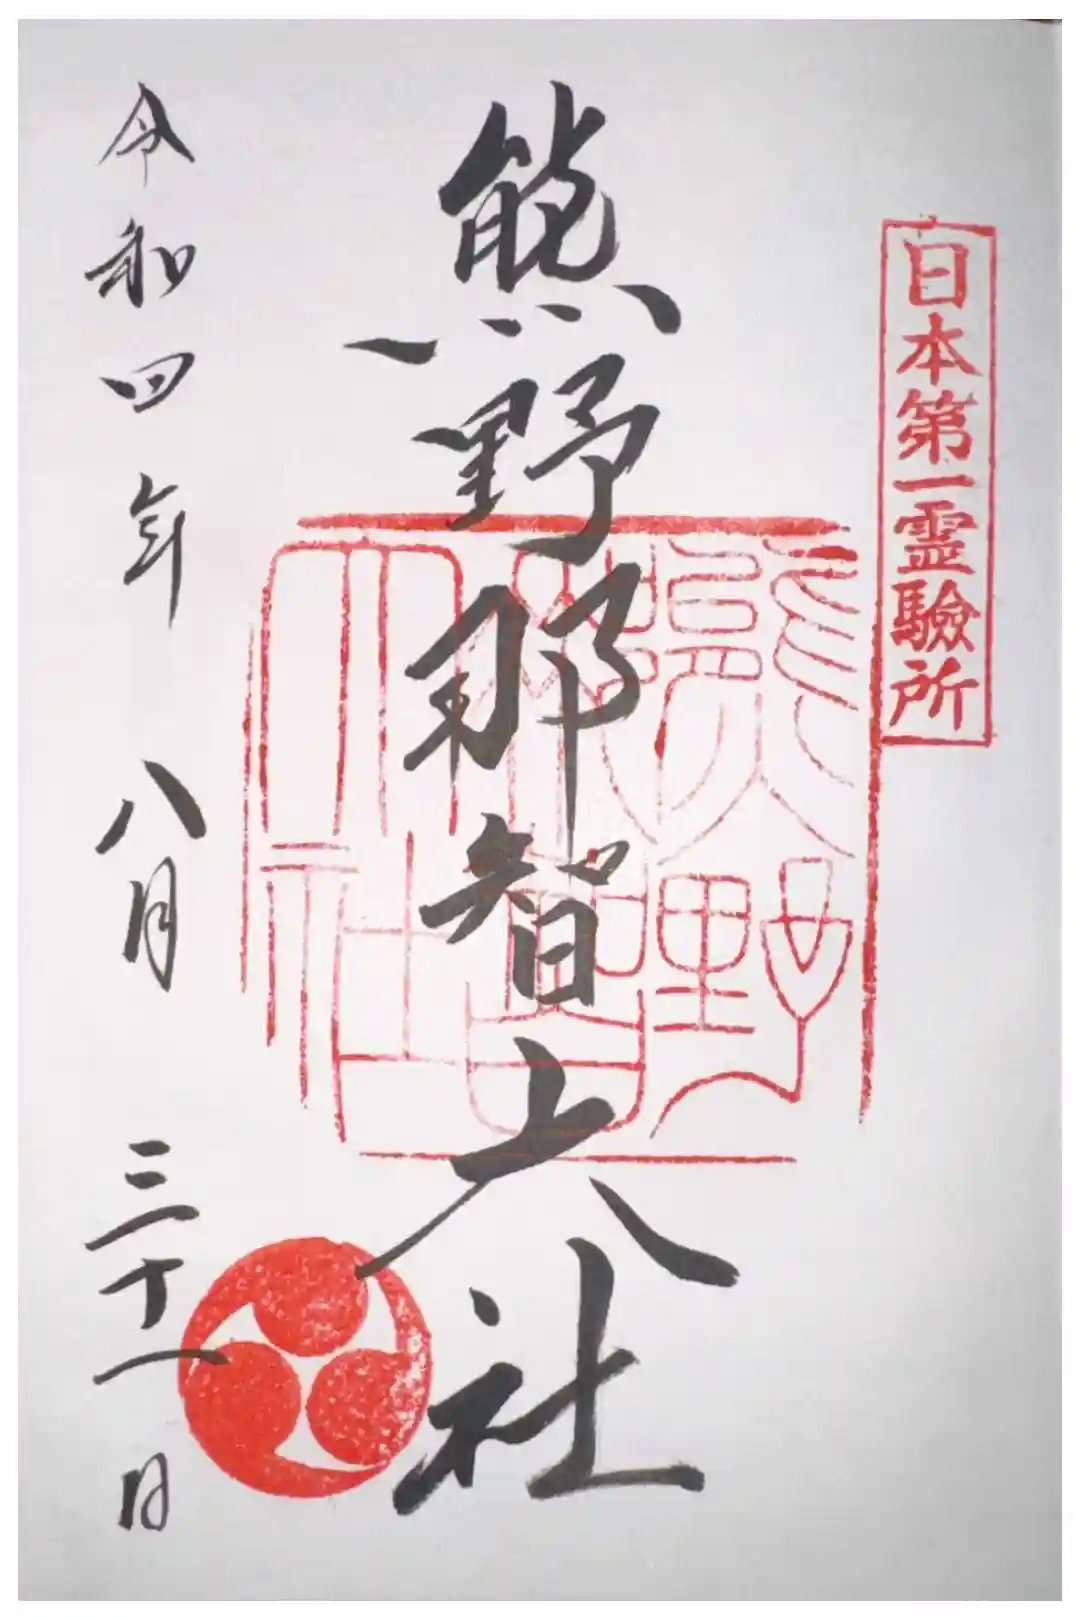 日本第一霊驗所
熊野那智大社
熊野
大社
令和四年八月三十一日